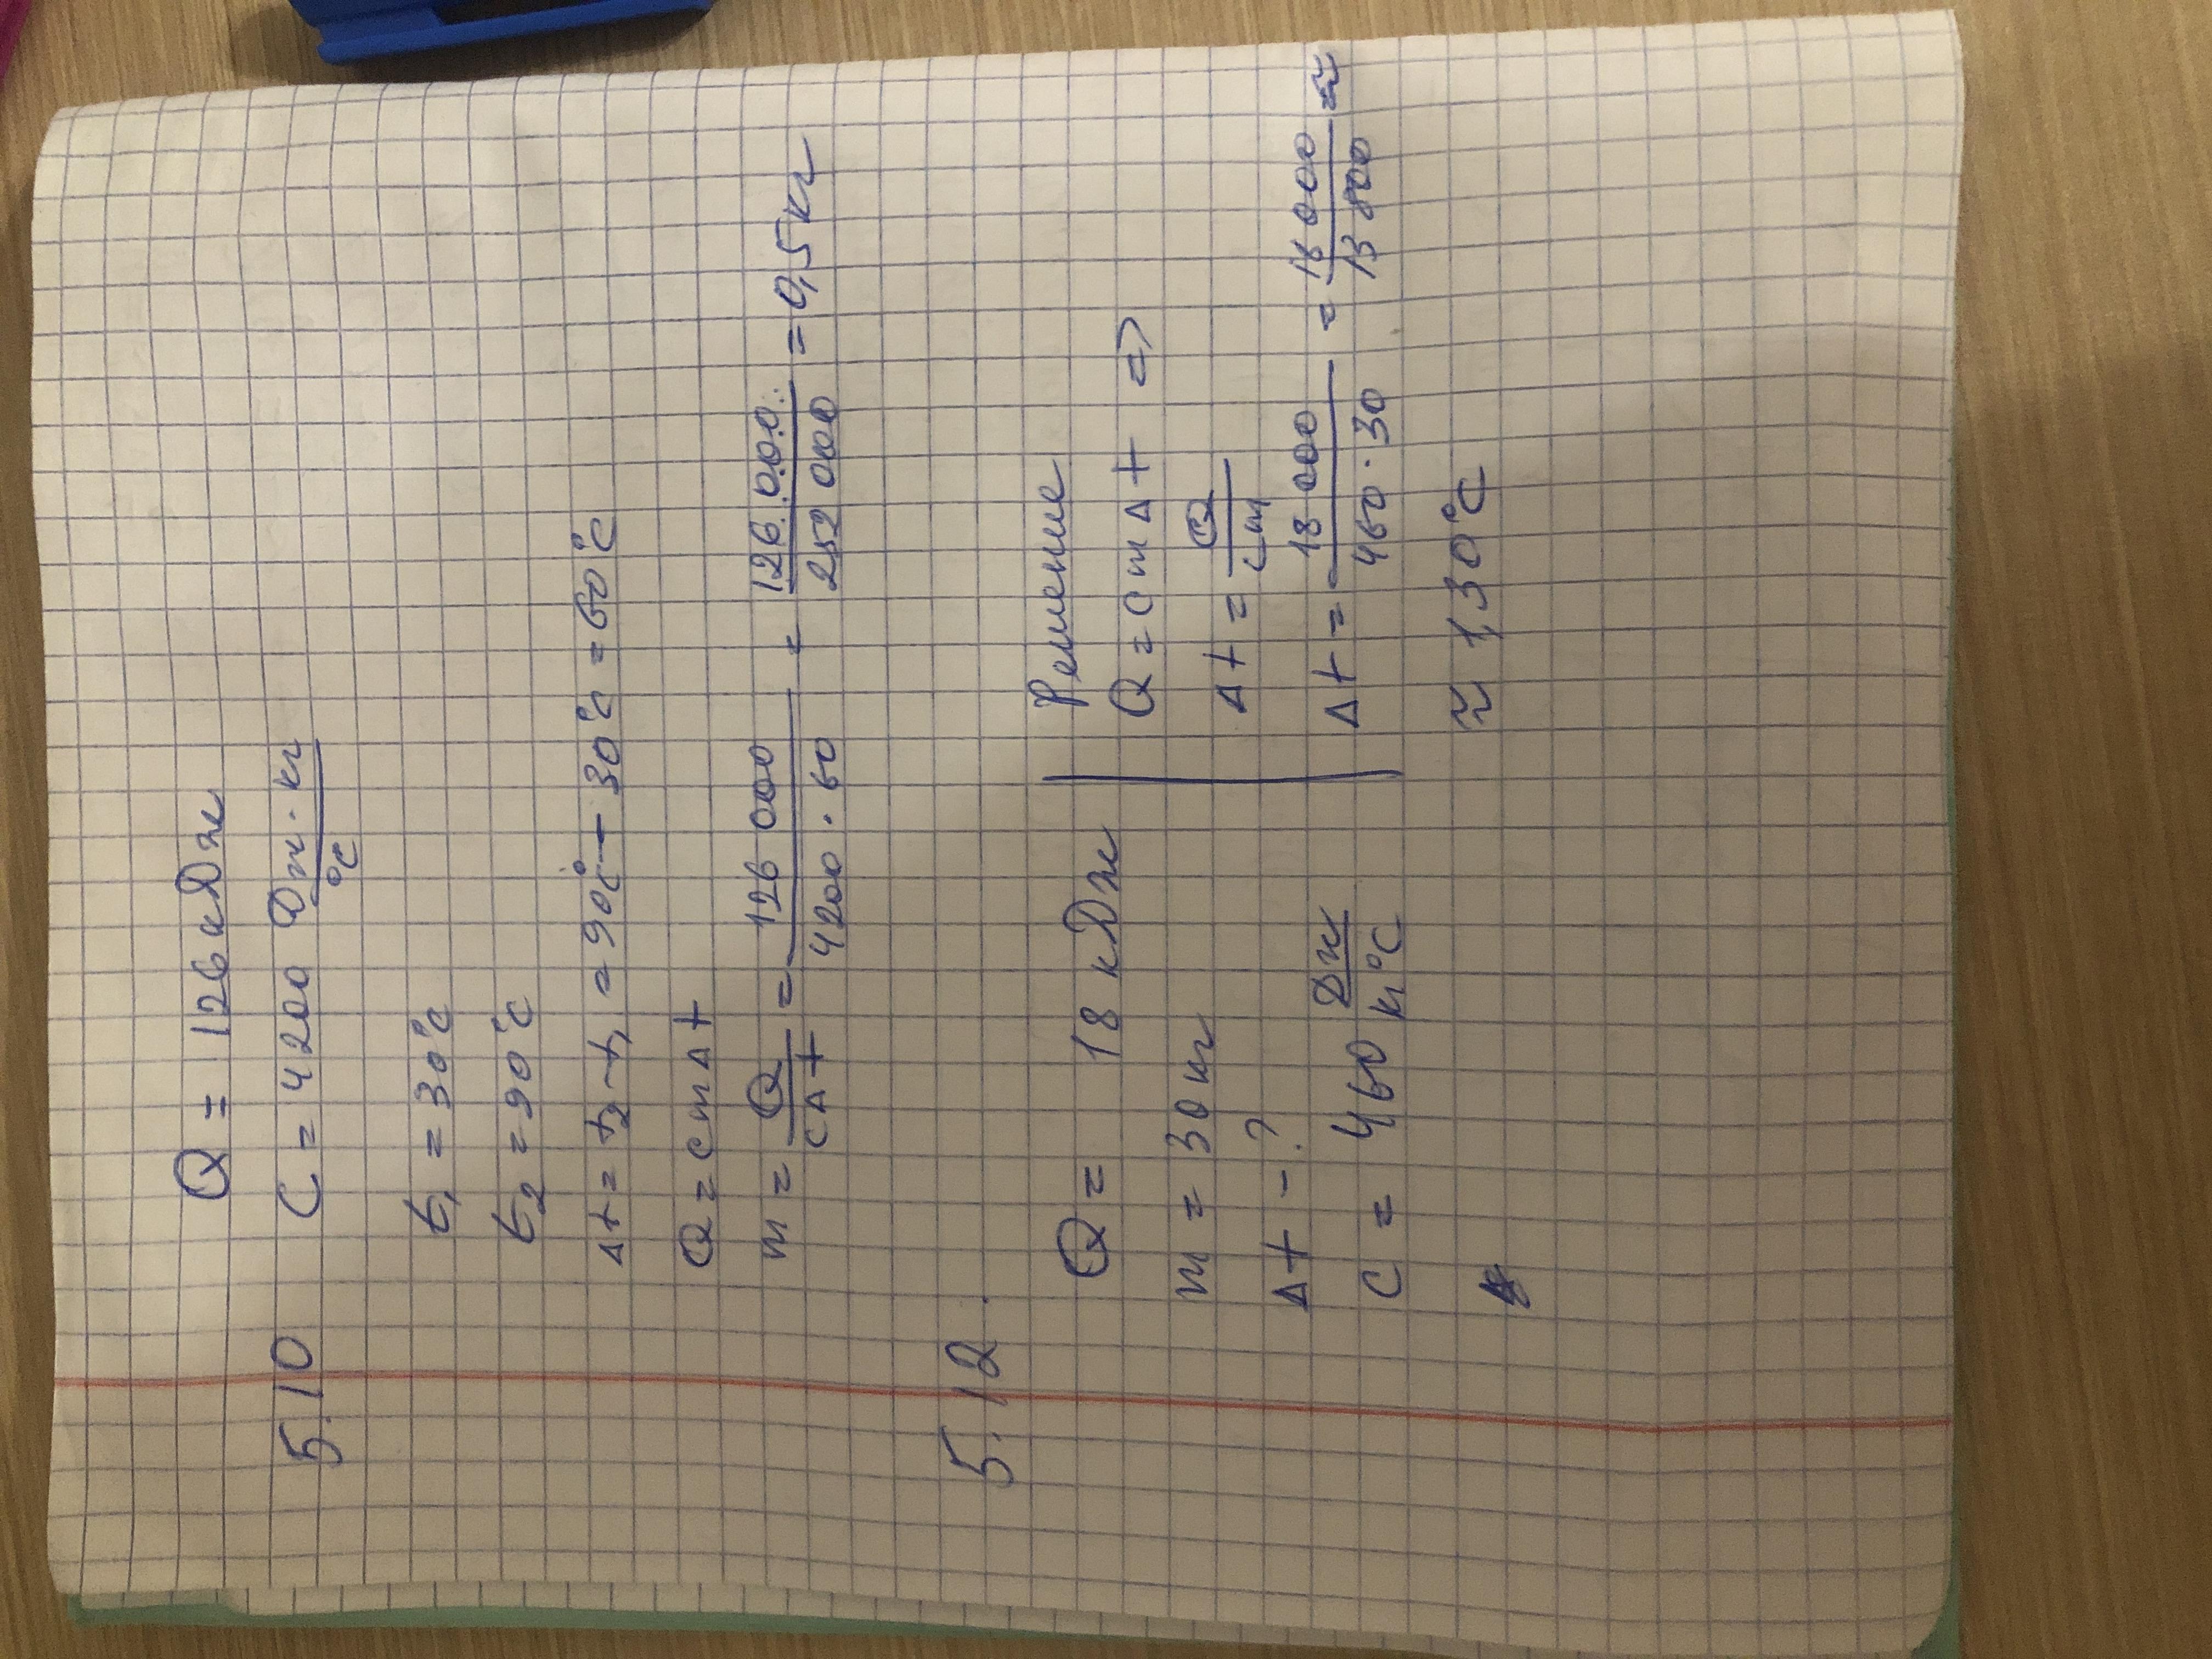 Q = 126 кДж
5.10 C = 4200 Дж · кг / °C
t₁ = 30°C
t₂ = 90°C
Δt = t₂ - t₁ = 90°C - 30°C = 60°C
Q = cmΔt
m = Q / cΔt = 126 000 / 4200 · 60 = 126 000 / 252 000 = 0,5 кг
5.12.
Q = 18 кДж
m = 30 кг
Δt - ?
C = 460 Дж / кг°C
Решение
Q = cmΔt =>
Δt = Q / cm
Δt = 18 000 / 460 · 30 = 18 000 / 13 800 ≈
≈ 1,30°C